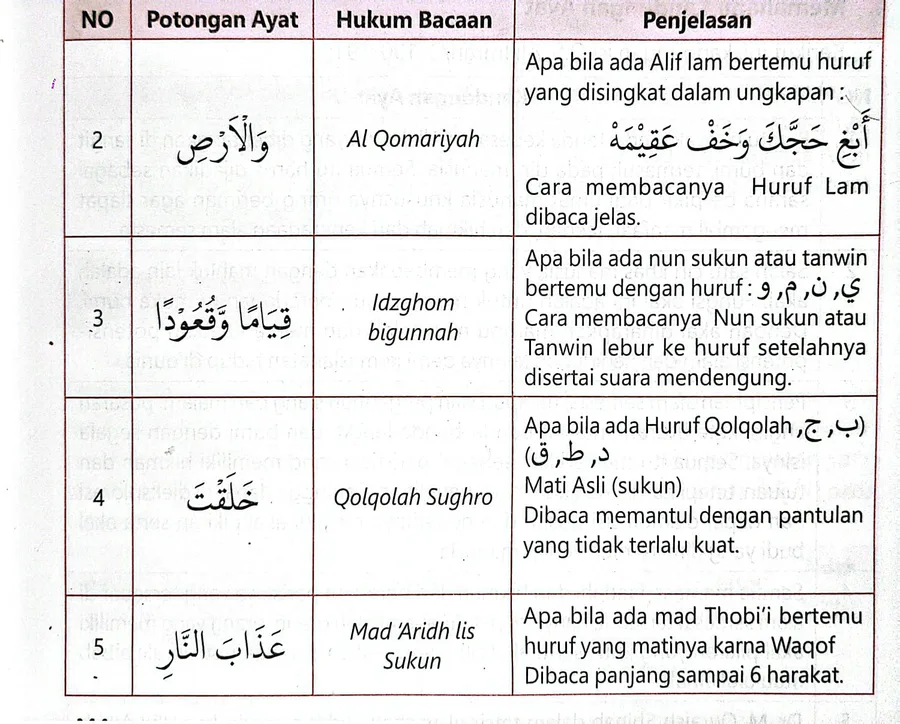 NO Potongan Ayat Hukum Bacaan Penjelasan
2
وَالْاَرْضِ
Al Qomariyah
Apa bila ada Alif lam bertemu huruf
yang disingkat dalam ungkapan :
أَبْغِ حَجَّكَ وَخَفْ عَقِيْمَهُ
Cara membacanya Huruf Lam
dibaca jelas.
3
قِيَامًا وَّقُعُوْدًا
Idzghom
bigunnah
Apa bila ada nun sukun atau tanwin
bertemu dengan huruf : ي ,ن ,م ,و
Cara membacanya Nun sukun atau
Tanwin lebur ke huruf setelahnya
disertai suara mendengung.
4
خَلَقْتَ
Qolqolah Sughro
Apa bila ada Huruf Qolqolah ,ب ,ج)
(د ,ط ,ق
Mati Asli (sukun)
Dibaca memantul dengan pantulan
yang tidak terlalu kuat.
5
عَذَابَ النَّارِ
Mad 'Aridh lis
Sukun
Apa bila ada mad Thobi'i bertemu
huruf yang matinya karna Waqof
Dibaca panjang sampai 6 harakat.